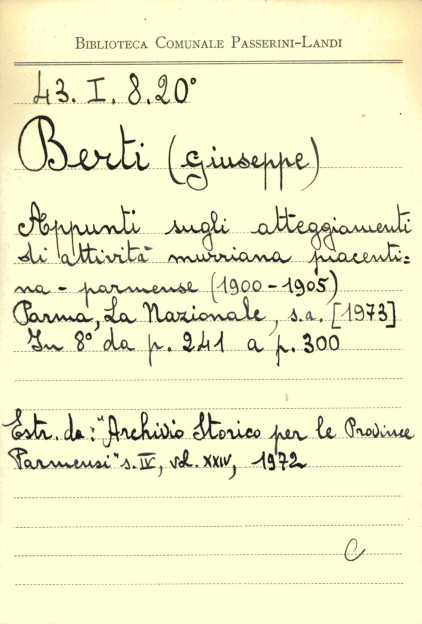 BIBLIOTECA COMUNALE PASSERINI-LANDI
43. I. 8.20°
Berti (Giuseppe)
Appunti sugli atteggiamenti
di attività murriana piacenti=
na - parmense (1900-1905)
Parma, La Nazionale, s.a. [1973]
In 8° da p. 241 a p. 300
Estr. da: "Archivio Storico per le Province
Parmensi" s. IV, vol. XXIV, 1972
C